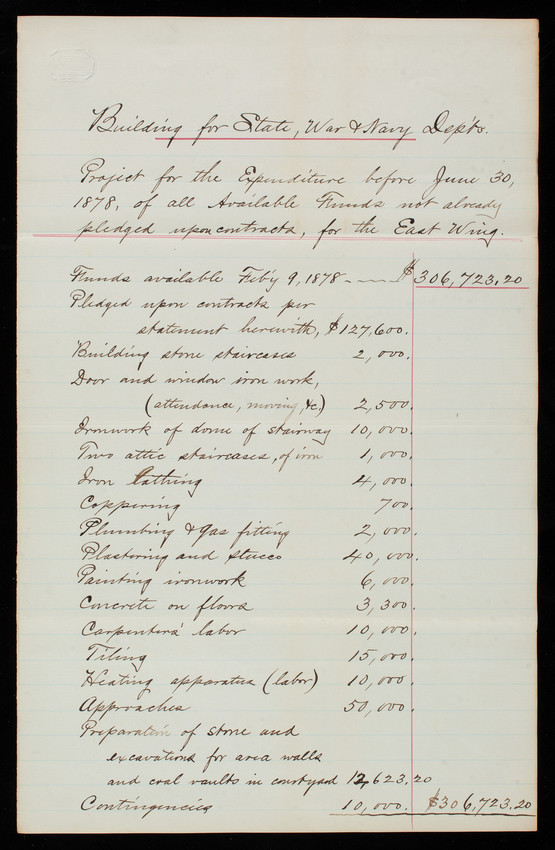 Building for State, War & Navy Dep'ts.
Project for the Expenditure before June 30,
1878, of all Available Funds not already
pledged upon contracts, for the East Wing.
Funds available Feb'y 9, 1878 - $306,723.20
Pledged upon contracts per
statement herewith, $127,600.
Building stone staircases 2,000.
Door and window iron work,
(attendance, moving, &c.) 2,500.
Ironwork of dome of stairway 10,000.
Two attic staircases, of iron 1,000.
Iron Lathing 4,000.
Coppering 700.
Plumbing & gas fitting 2,000.
Plastering and stucco 40,000.
Painting ironwork 6,000.
Concrete on floors 3,300.
Carpenters' labor 10,000.
Tiling 15,000.
Heating apparatus (labor) 10,000.
Approaches 50,000.
Preparation of stone and
excavations for area walls
and coal vaults in courtyard 12,623.20
Contingencies 10,000. $306,723.20